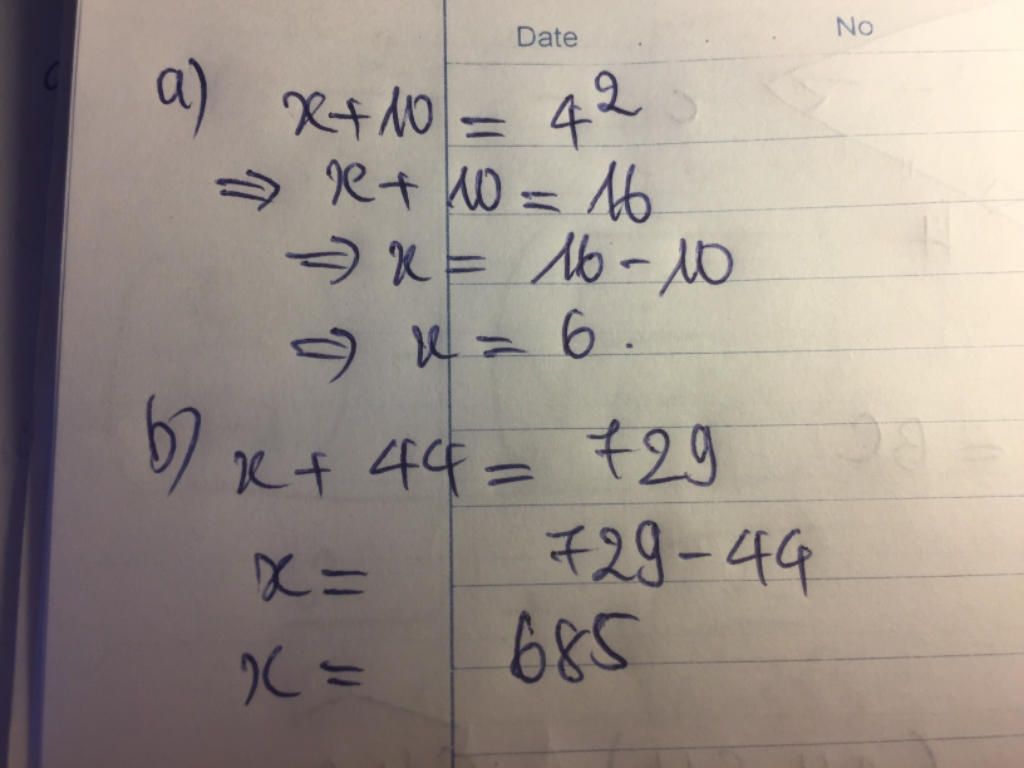 Date No
a) x+10 = 4²
⇒ x+ 10 = 16
⇒ x = 16 - 10
⇒ x = 6 .
b) x + 44 = 729
x = 729 - 44
x = 685